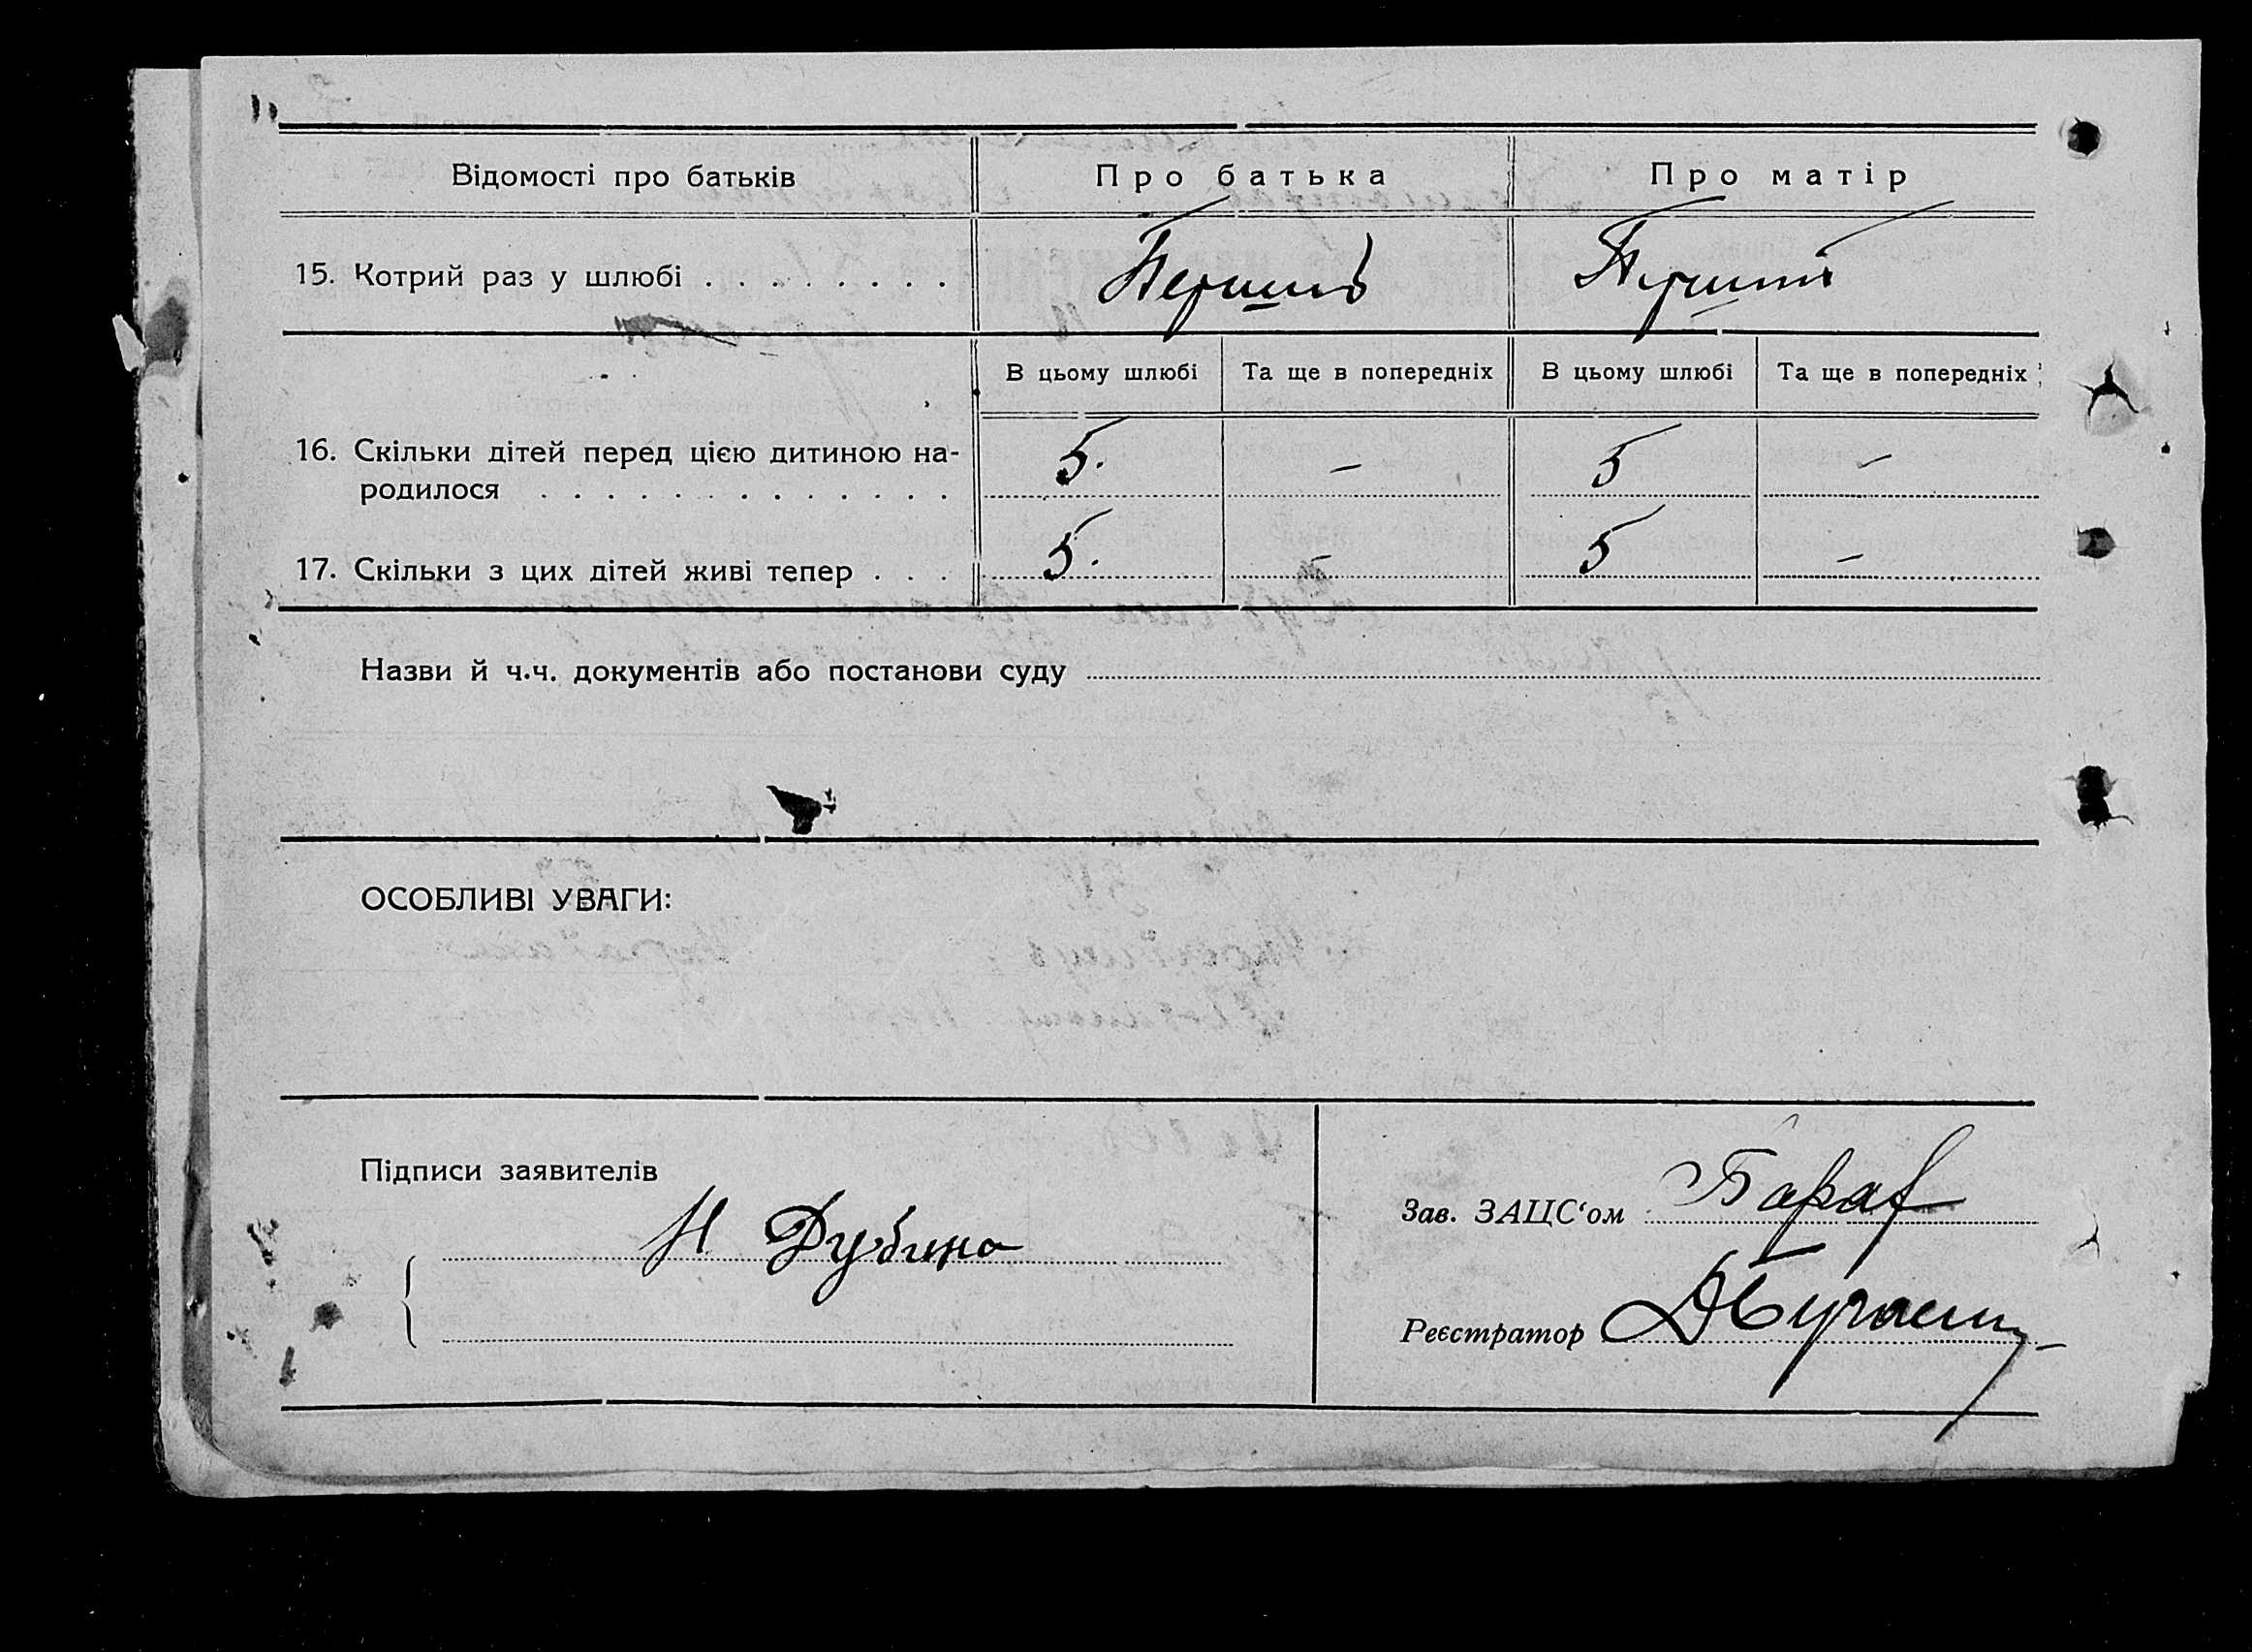 Відомості про батьків Про батька Про матір
15. Котрий раз у шлюбі . . . . . . . .
В цьому шлюбі Та ще в попередніх В цьому шлюбі Та ще в попередніх
16. Скільки дітей перед цією дитиною на- 5. – 5 –
родилося . . . . . . . . . . . . .
17. Скільки з цих дітей живі тепер . . . 5. – 5 –
Назви й ч.ч. документів або постанови суду
ОСОБЛИВІ УВАГИ:
Підписи заявителів
Зав. ЗАЦС‘ом
Н Дубина
Реєстратор